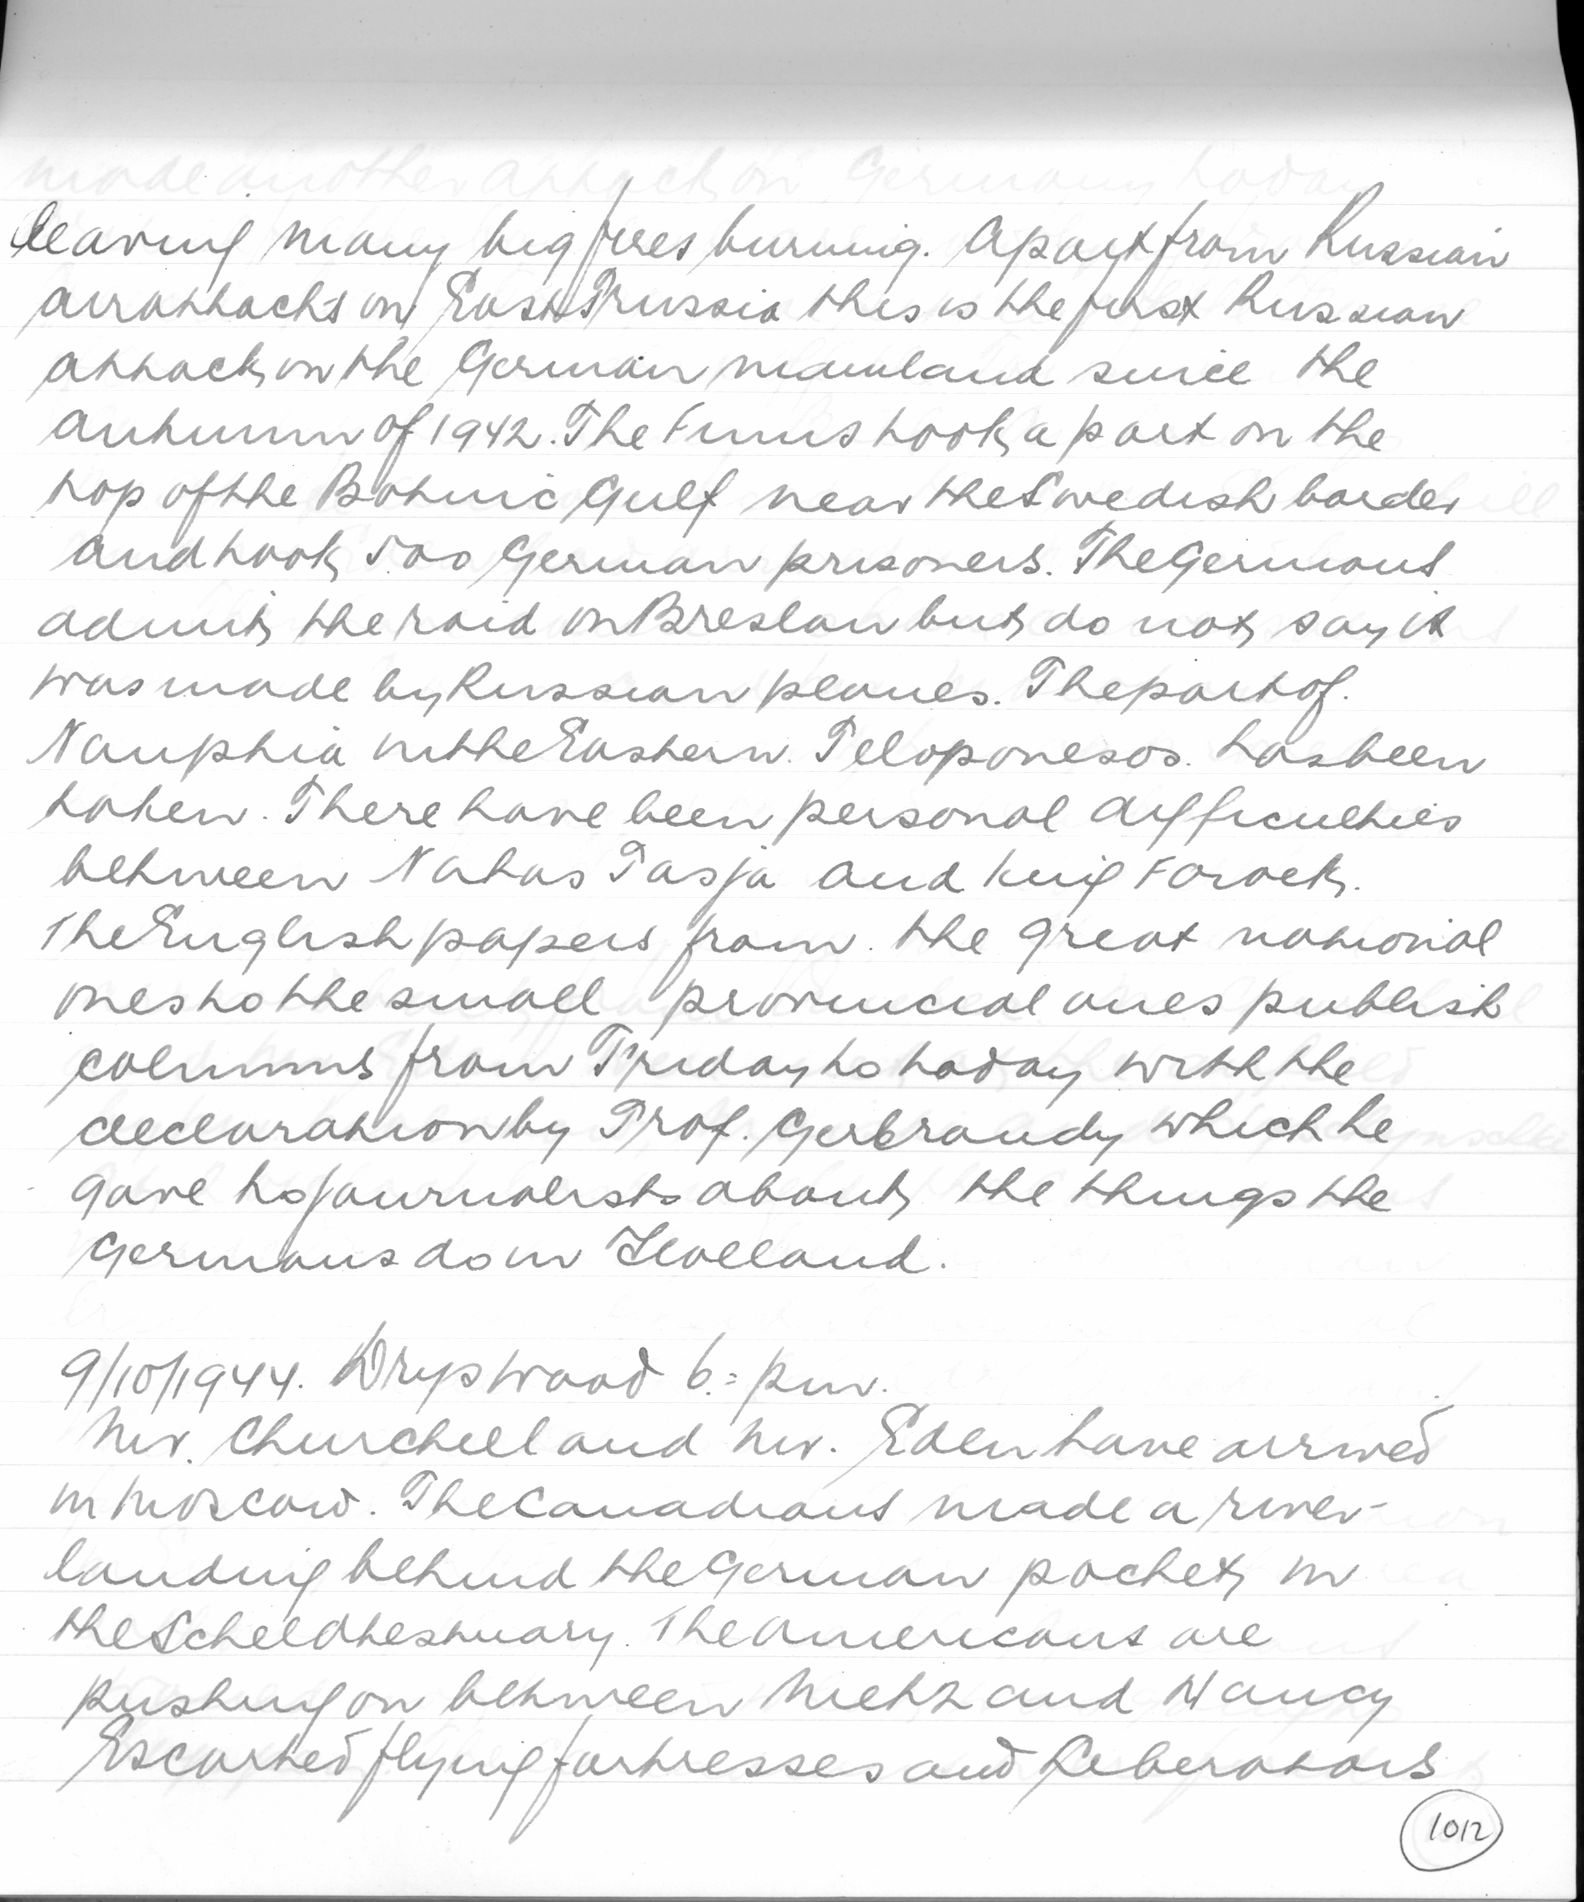 leaving many big fires burning. Apart from Russian
airattacks on East Prussia this is the first Russian
attack on the German mainland since the
autumn of 1942. The Finns took a port on the
top of the Botnic Gulf near the Swedish border
and took 500 German prisoners. The Germans
admit the raid on Breslau but do not say it
was made by Russian planes. The port of.
Nauphia in the Eastern. Peloponesos. has been
taken. There have been personal difficulties
between Nahas Pasja and King Farock.
The English papers from. the great national
ones to the small provincial ones publish
columns from Friday to today with the
declaration by Prof. Gerbrandy which he
gave to journalists about the things the
Germans do in Holland.
9/10/1944. 6.= pm.
Mr. Churchill and Mr. Eden have arrived
in Moscow. The Canadians made a river-
landing behind the German pocket in
the Scheldtestuary. The Americans are
pushing on between Metz and Nancy
Escorted flying fortresses and Liberators
1012